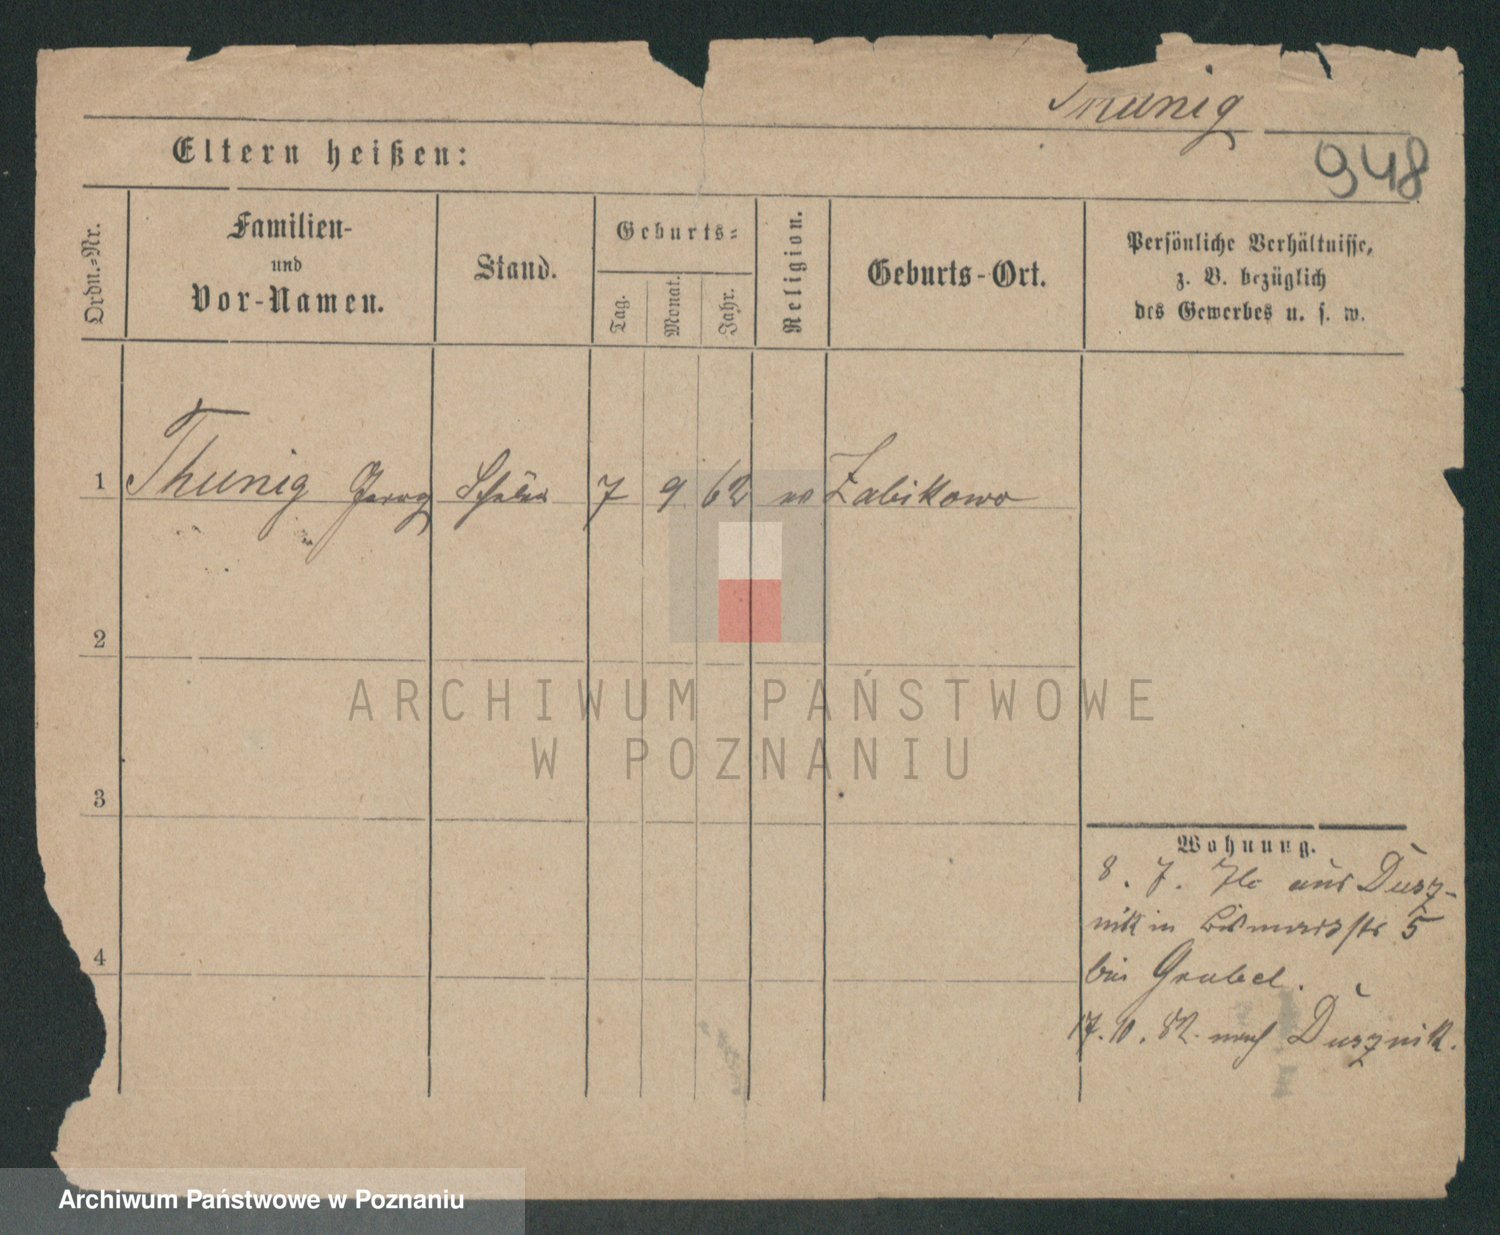 Thunig
948
Eltern heißen:
Ordn.-Nr.
Familien-
und
Vor-Namen.
Stand.
Geburts-
Tag.
Monat.
Jahr.
Religion.
Geburts-Ort.
Persönliche Verhältnisse,
z. B. bezüglich
des Gewerbes u. s. w.
1 Thunig Georg 7 9 62 Zabikowo
2
3
4
Wohnung.
8. 7. aus Dusz-
nik in Bismarckstr 5
bei Grabel.
17. 10. 82. nach Dusznik.
ARCHIWUM PAŃSTWOWE
W POZNANIU
Archiwum Państwowe w Poznaniu